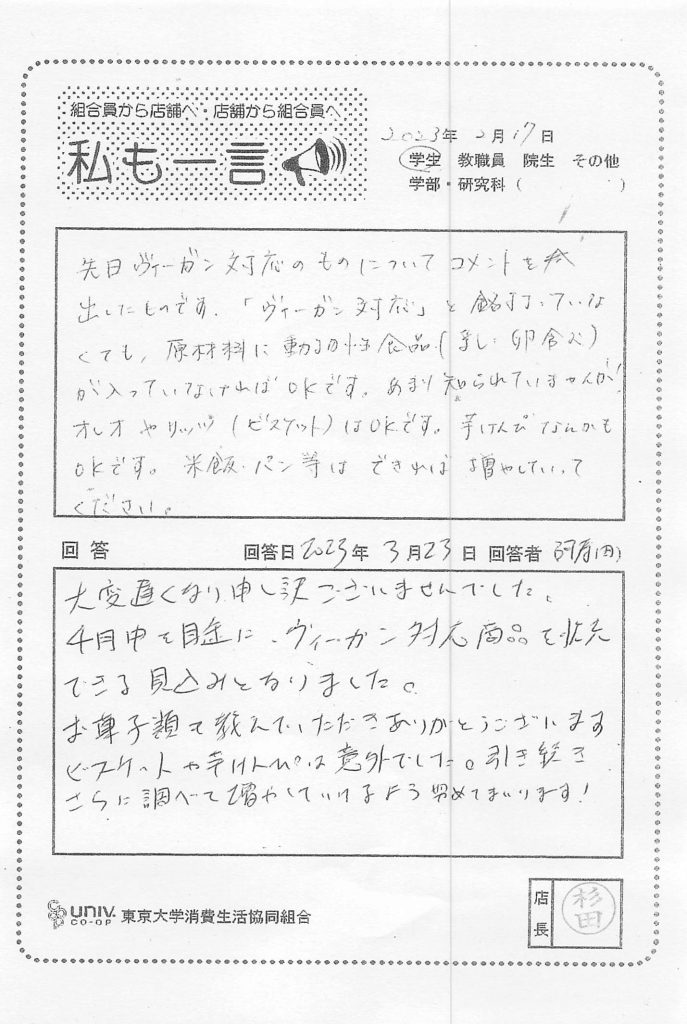 組合員から店舗へ・店舗から組合員へ
私も一言
2023年 2月17日
学生 教職員 院生 その他
学部・研究科（ ）
先日ヴィーガン対応のものについてコメントを
出したものです。「ヴィーガン対応」と銘打っていな
くても、原材料に動物性食品（乳・卵含む）
が入っていなければOKです。あまり知られていませんが
オレオやリッツ（ビスケット）はOKです。芋けんぴなんかも
OKです。米飯・パン等はできれば増やしていって
ください。
回答 回答日2023年 3月23日 回答者
大変遅くなり申し訳ございませんでした。
4月中を目途に、ヴィーガン対応商品を拡充
できる見込みとなりました。
お菓子類で教えていただきありがとうございます
ビスケットや芋けんぴは意外でした。引き続き
さらに調べて増やしていけるよう努めてまいります！
UNIV. CO-OP 東京大学消費生活協同組合
店長 杉田